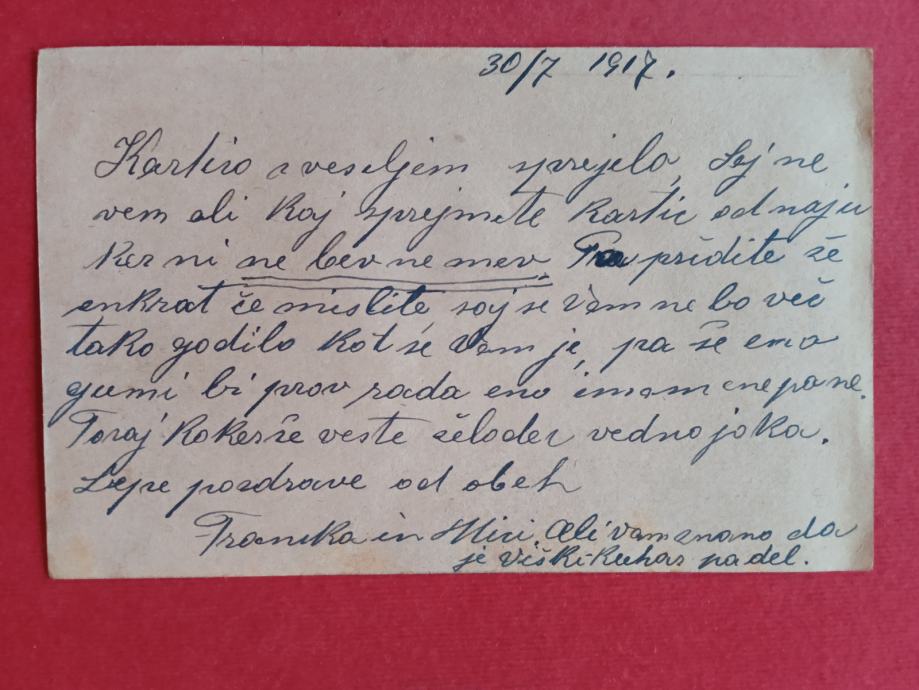 30/7 1917.
Kartico z veseljem sprejela, Sej ne
vem ali kaj sprejmete kartic od naju
ker ni ne bev ne mev Pa pridite še
enkrat če mislite saj se Vam ne bo več
tako godilo kot se Vam je, pa še ema
gumi bi prov rada eno imam ene pa ne.
Toraj koker že veste želodec vedno joka.
Lepe pozdrave od obeh
Francka in Mici. Ali vam znano da
je Viški kuhar padel.